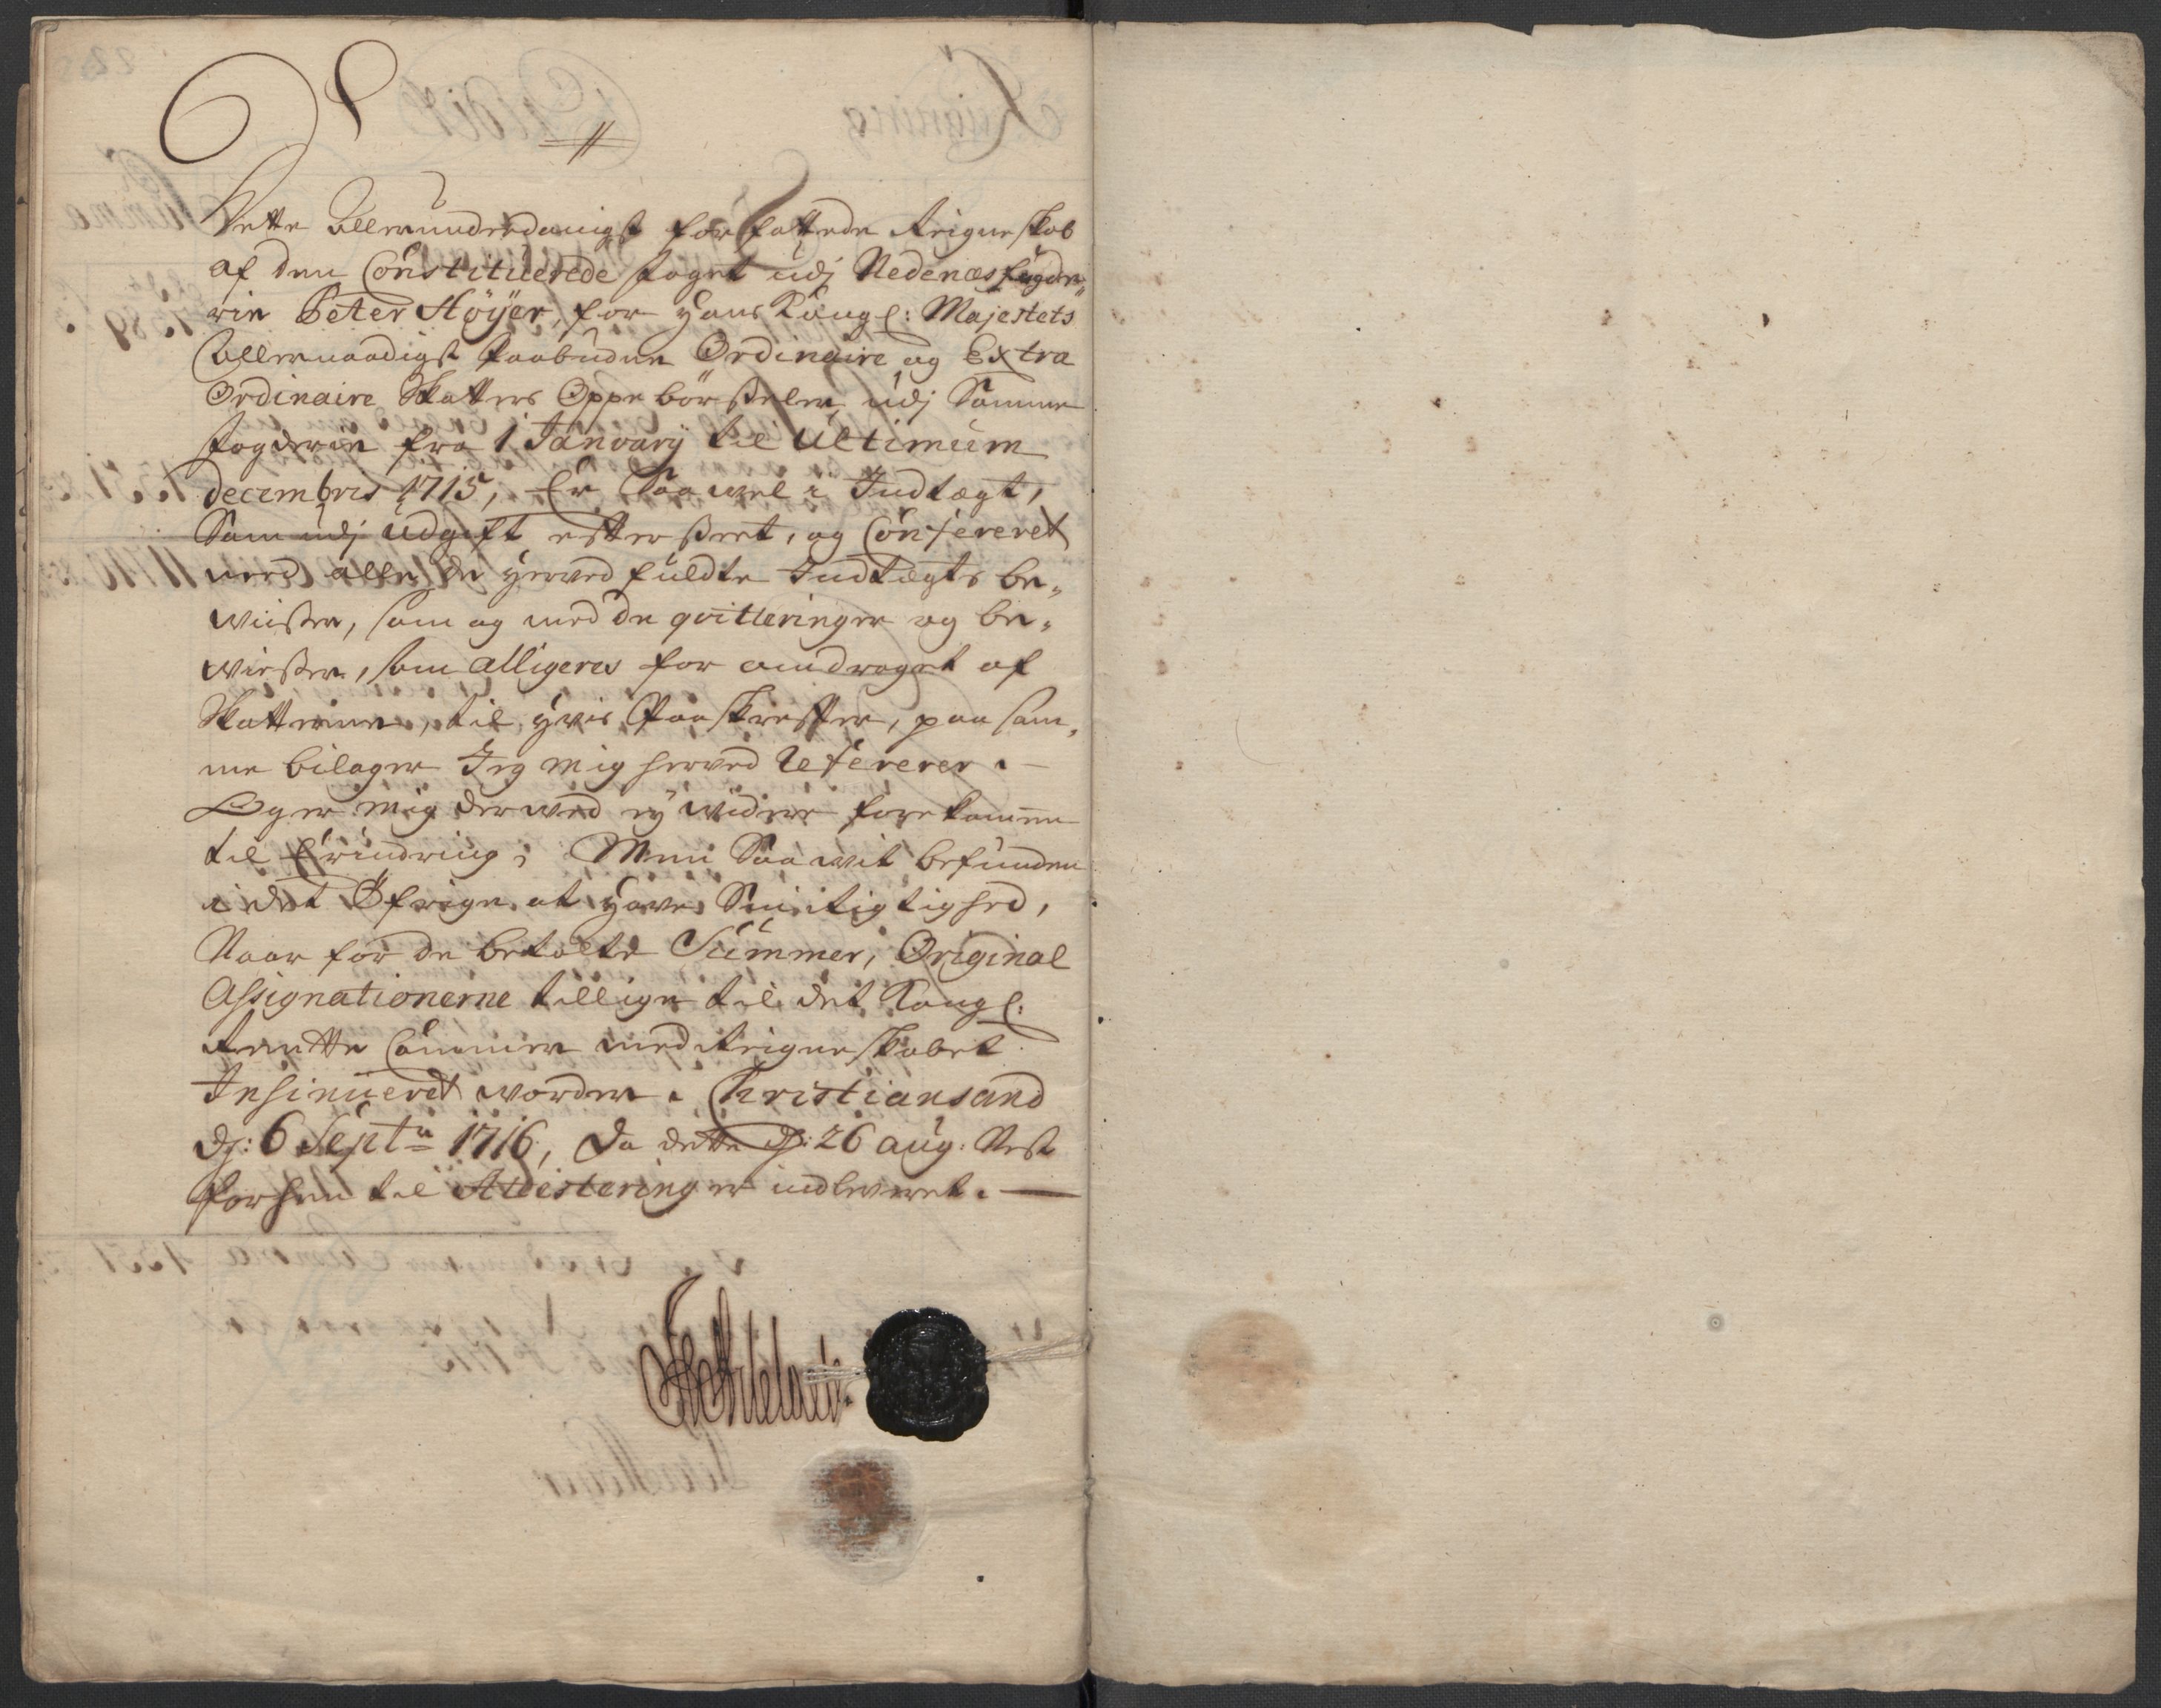 Dette Allerunderdanigst forfattede Reigneskab
af den Constituerede foget udj Nedenæs fogde„
rie Peter Höÿer, for Hans Kongl: Majestets
Allernaadigst Paabudne Ordinaire og Extra
Ordinaire Skatters Oppebörsseler, udj Samme
fogderie fra 1 Januarÿ til Ultimum
Decembris 1715, Er Saa vel i Indtægt,
Som udj Udgift efterseet, og Confereret
med alle de herved fuldte Indtægts be„
viisser, som og med de qvitteringer og be„
viisser, som alligeres for andraget af
Skatterne, til hvis Paaskrefter, paa sam„
me bilager Jeg mig herved Refererer.
Og er mig derved eÿ videre forekommen
til Erindring; Men Saavit befunden
i det Öfrige at have Sin Rigtighed,
Naar for de betalte Summer, Original
Assignationerne tillige til det Kongl:
Rentte Cammer med Reigneskabet
Insinueret worder. Christiansand
dj: 6 Septr 1716, Da dette dj: 26 aug: Nest
forhen til Attestering er indleveret.